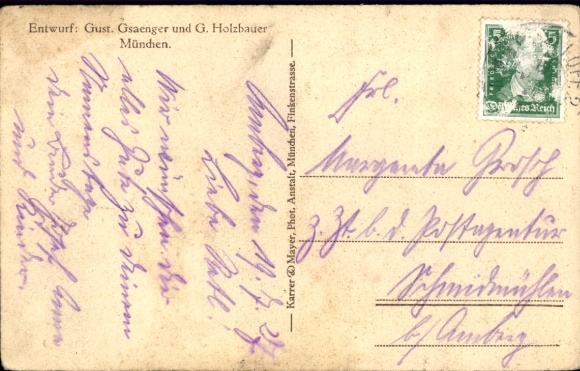 Entwurf: Gust. Gsaenger und G. Holzbauer
München.
Amberg, den 19. 7. 27
Liebe Betl!
Wir wünschen dir
alles Gute zu deinem
Namenstage
und Kinder
Karrer & Mayer, Phot. Anstalt, München, Finkenstrasse.
5 5
Deutsches Reich
Frl.
Margareta Grosch
z. Zt. b. d. Postagentur
Schmidmühlen
b/ Amberg